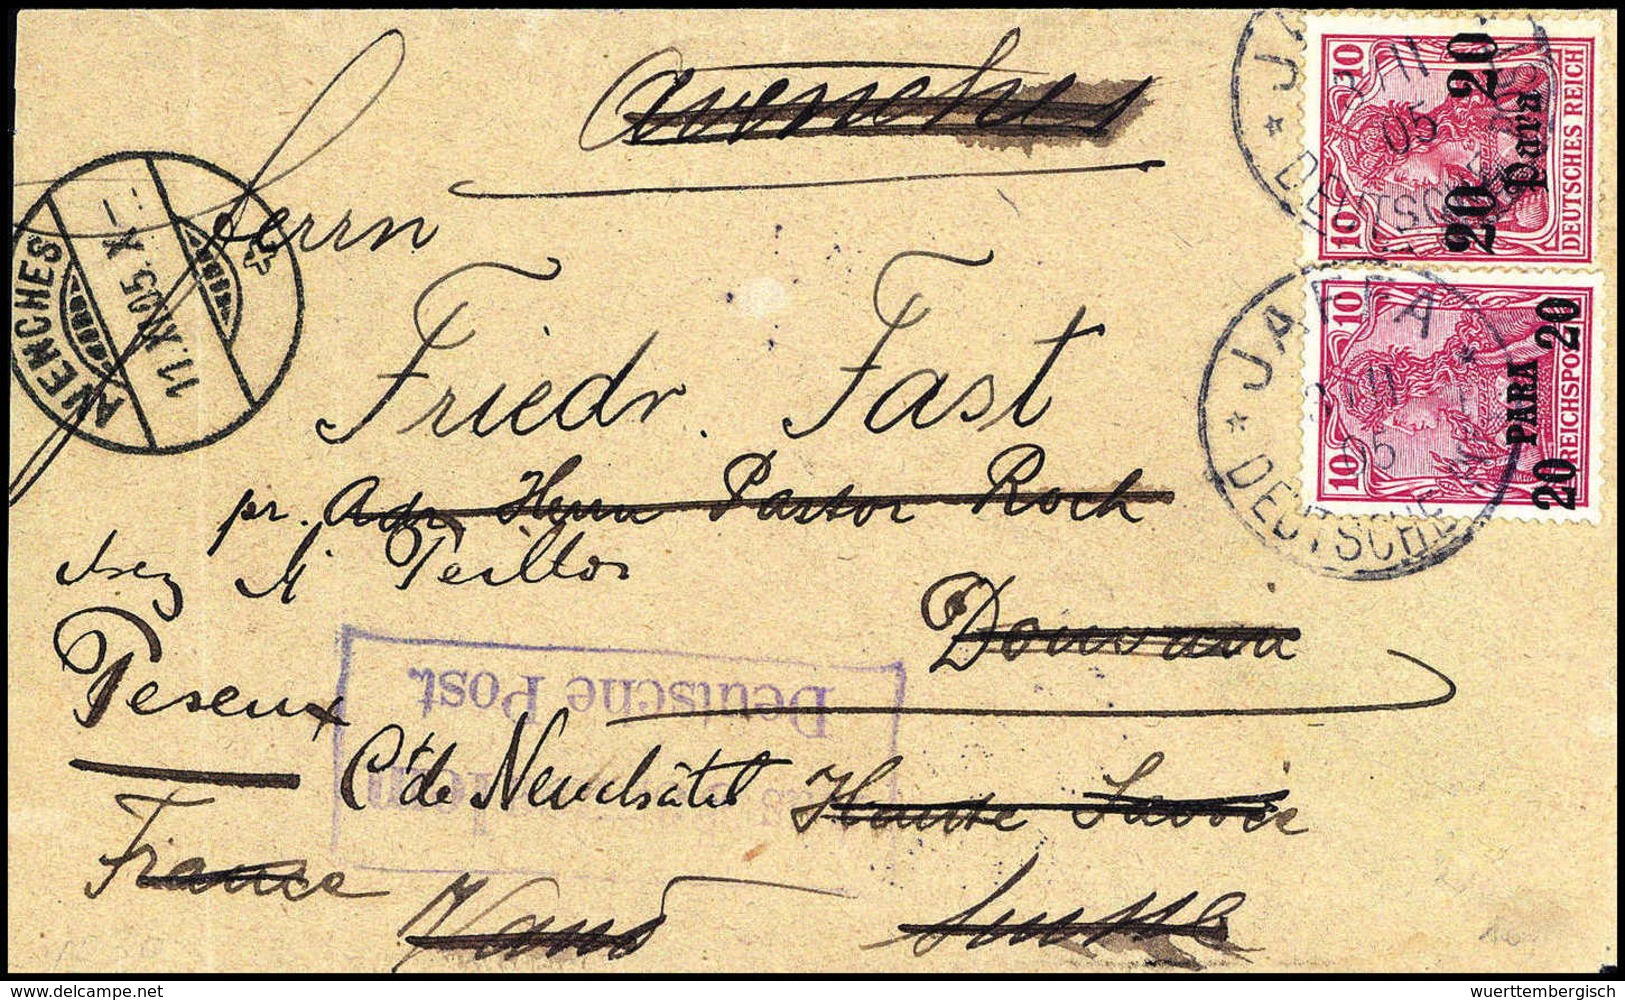 Avenches
Herrn
Friedr. Fast
pr. Adr. Herrn Pastor Rock
chez M
Peseux
Cᵗ de Neuchâtel
Haute Savoie
France
Vaud
Suisse
AVENCHES
11.XII.05.X–
JAFFA
II
05
DEUTSCHE
10
10
DEUTSCHES REICH
20 Para 20
JAFFA
05
DEUTSCHE
10
10
REICHSPOST
20 PARA 20
Deutsche Post.
www.delcampe.net
wuerttembergisch